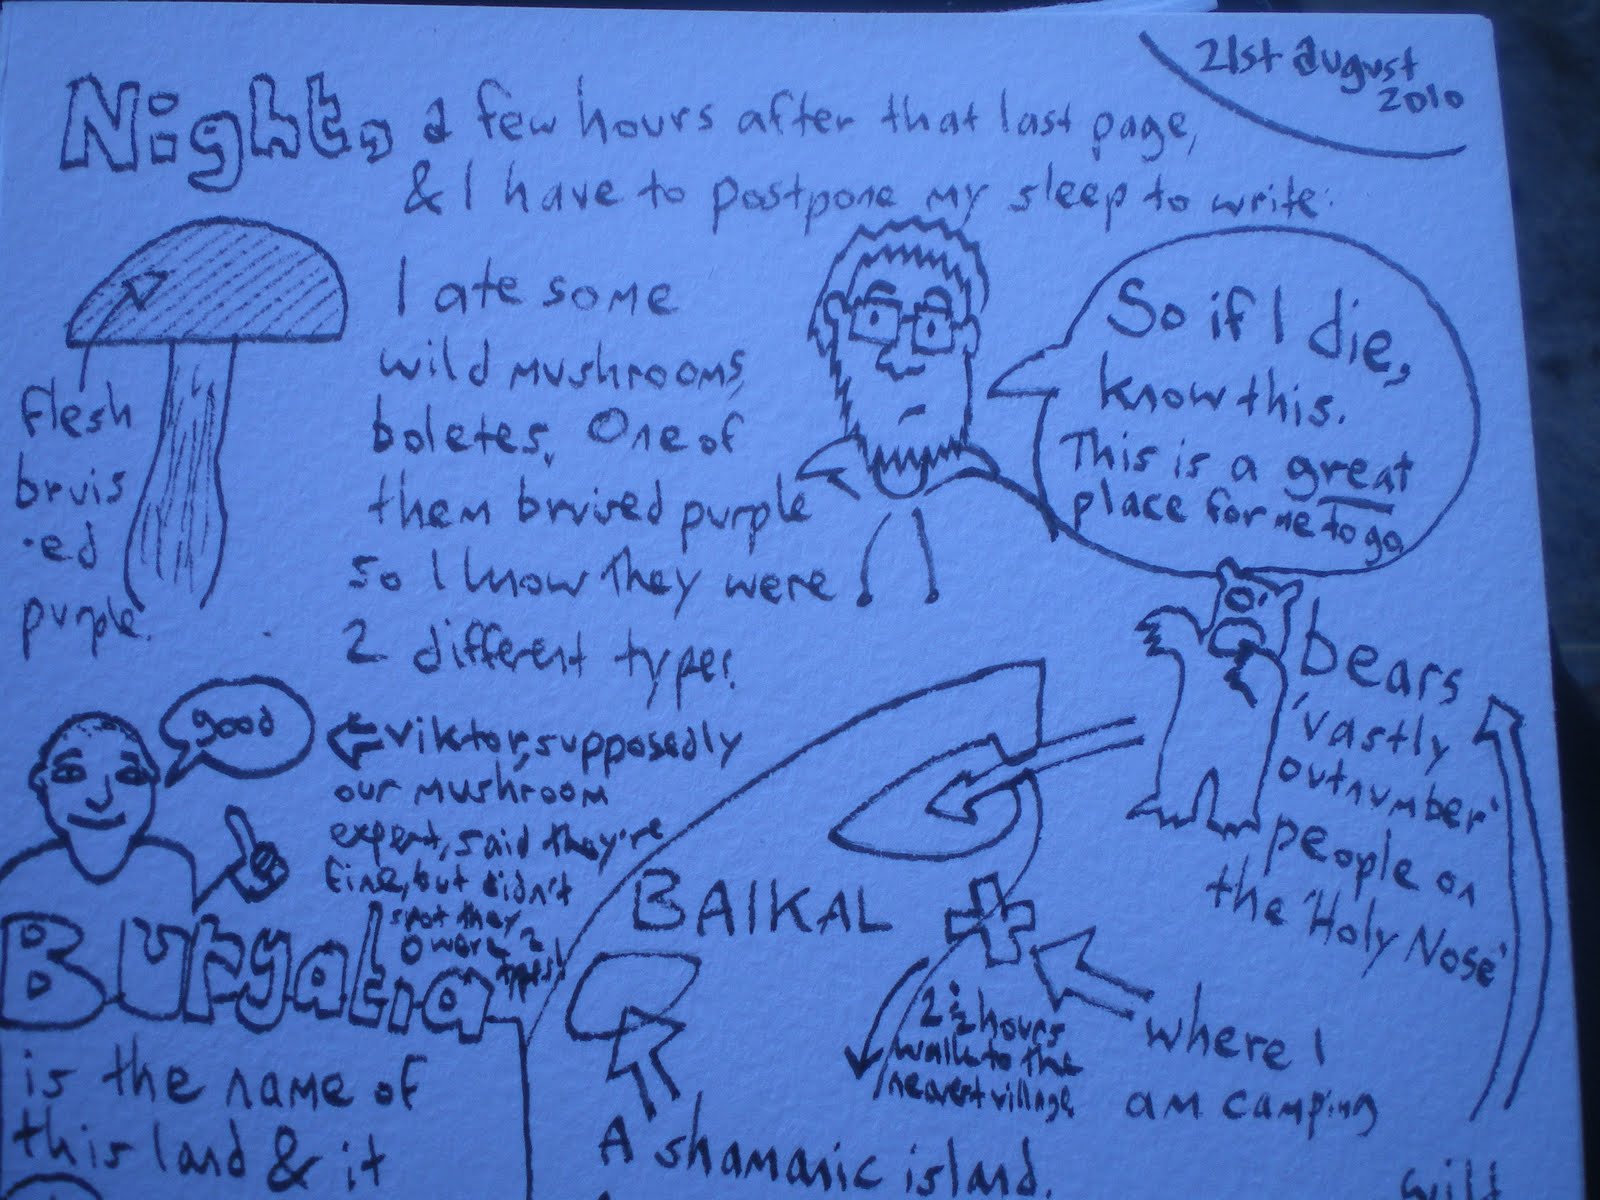 21st august
2010
Night, a few hours after that last page,
& I have to postpone my sleep to write:
I ate some
wild mushrooms,
boletes. One of
them bruised purple
so I know they were
2 different types.
flesh
bruis
-ed
purple.
So if I die,
know this.
This is a great
place for me to go
good
viktor, supposedly
our mushroom
expert, said they're
fine, but didn't
spot they
were 2
types!
bears
'vastly
outnumber'
people on
the 'Holy Nose'
BAIKAL
2 ½ hours
walk to the
nearest village
where I
am camping
A shamanic island.
Buryatia
is the name of
this land & it
will